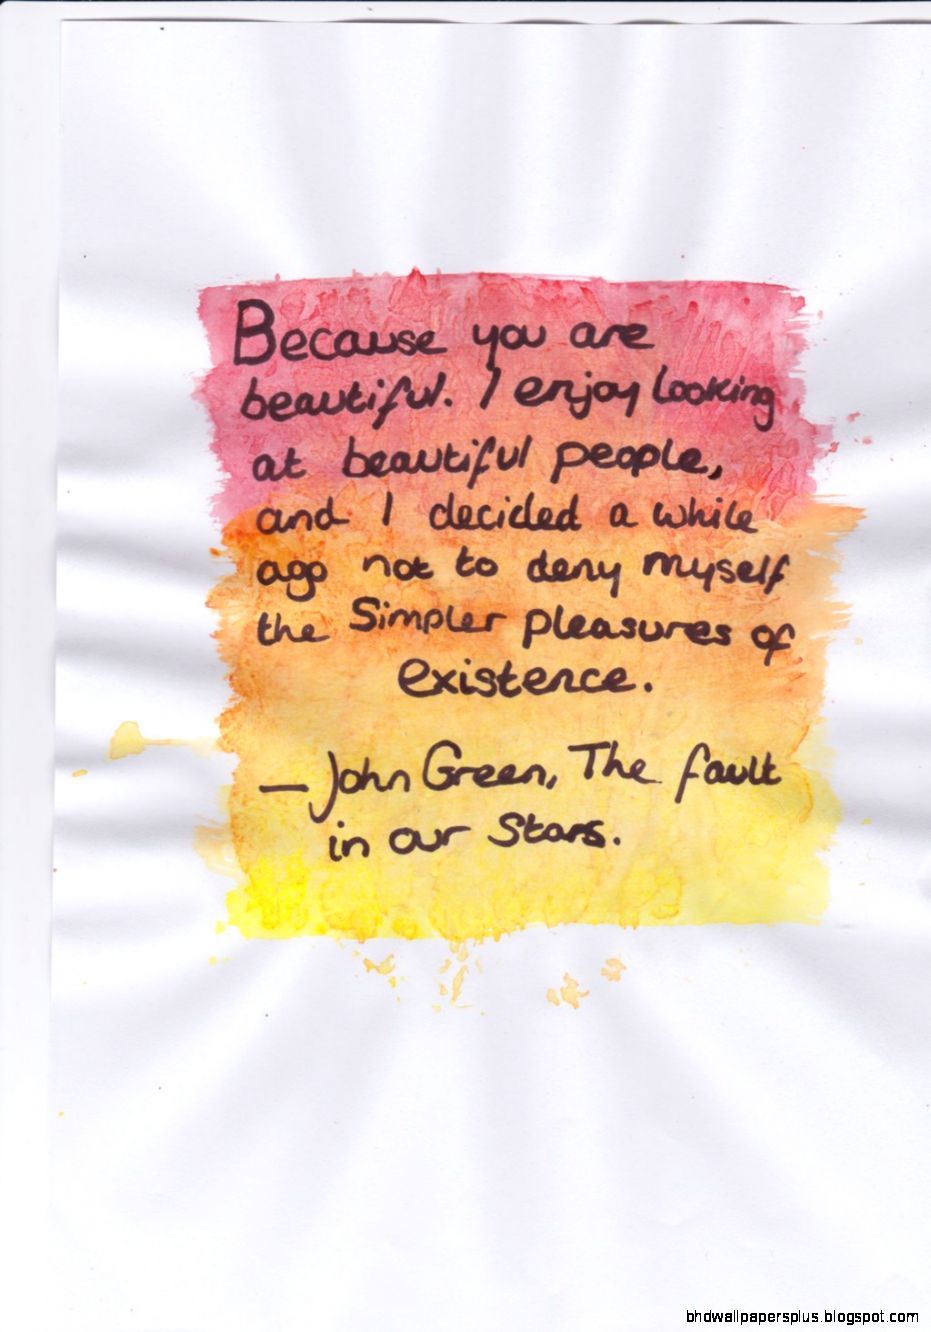 Because you are
beautiful. I enjoy looking
at beautiful people,
and I decided a while
ago not to deny myself
the Simpler pleasures of
existence.
— John Green, The fault
in our Stars.
bhdwallpapersplus.blogspot.com